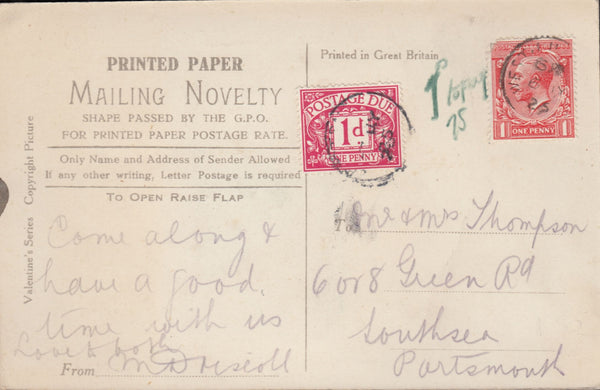 PRINTED PAPER
MAILING NOVELTY
SHAPE PASSED BY THE G.P.O.
FOR PRINTED PAPER POSTAGE RATE.
Only Name and Address of Sender Allowed
If any other writing, Letter Postage is required
TO OPEN RAISE FLAP
Come along &
have a good.
time with us
Love to both
From M Driscoll
Valentine's Series Copyright Picture
Printed in Great Britain
POSTAGE DUE
1d
ONE PENNY
1 ONE PENNY 1
Mr & Mrs Thompson
6 or 8 Green Rd
Southsea
Portsmouth